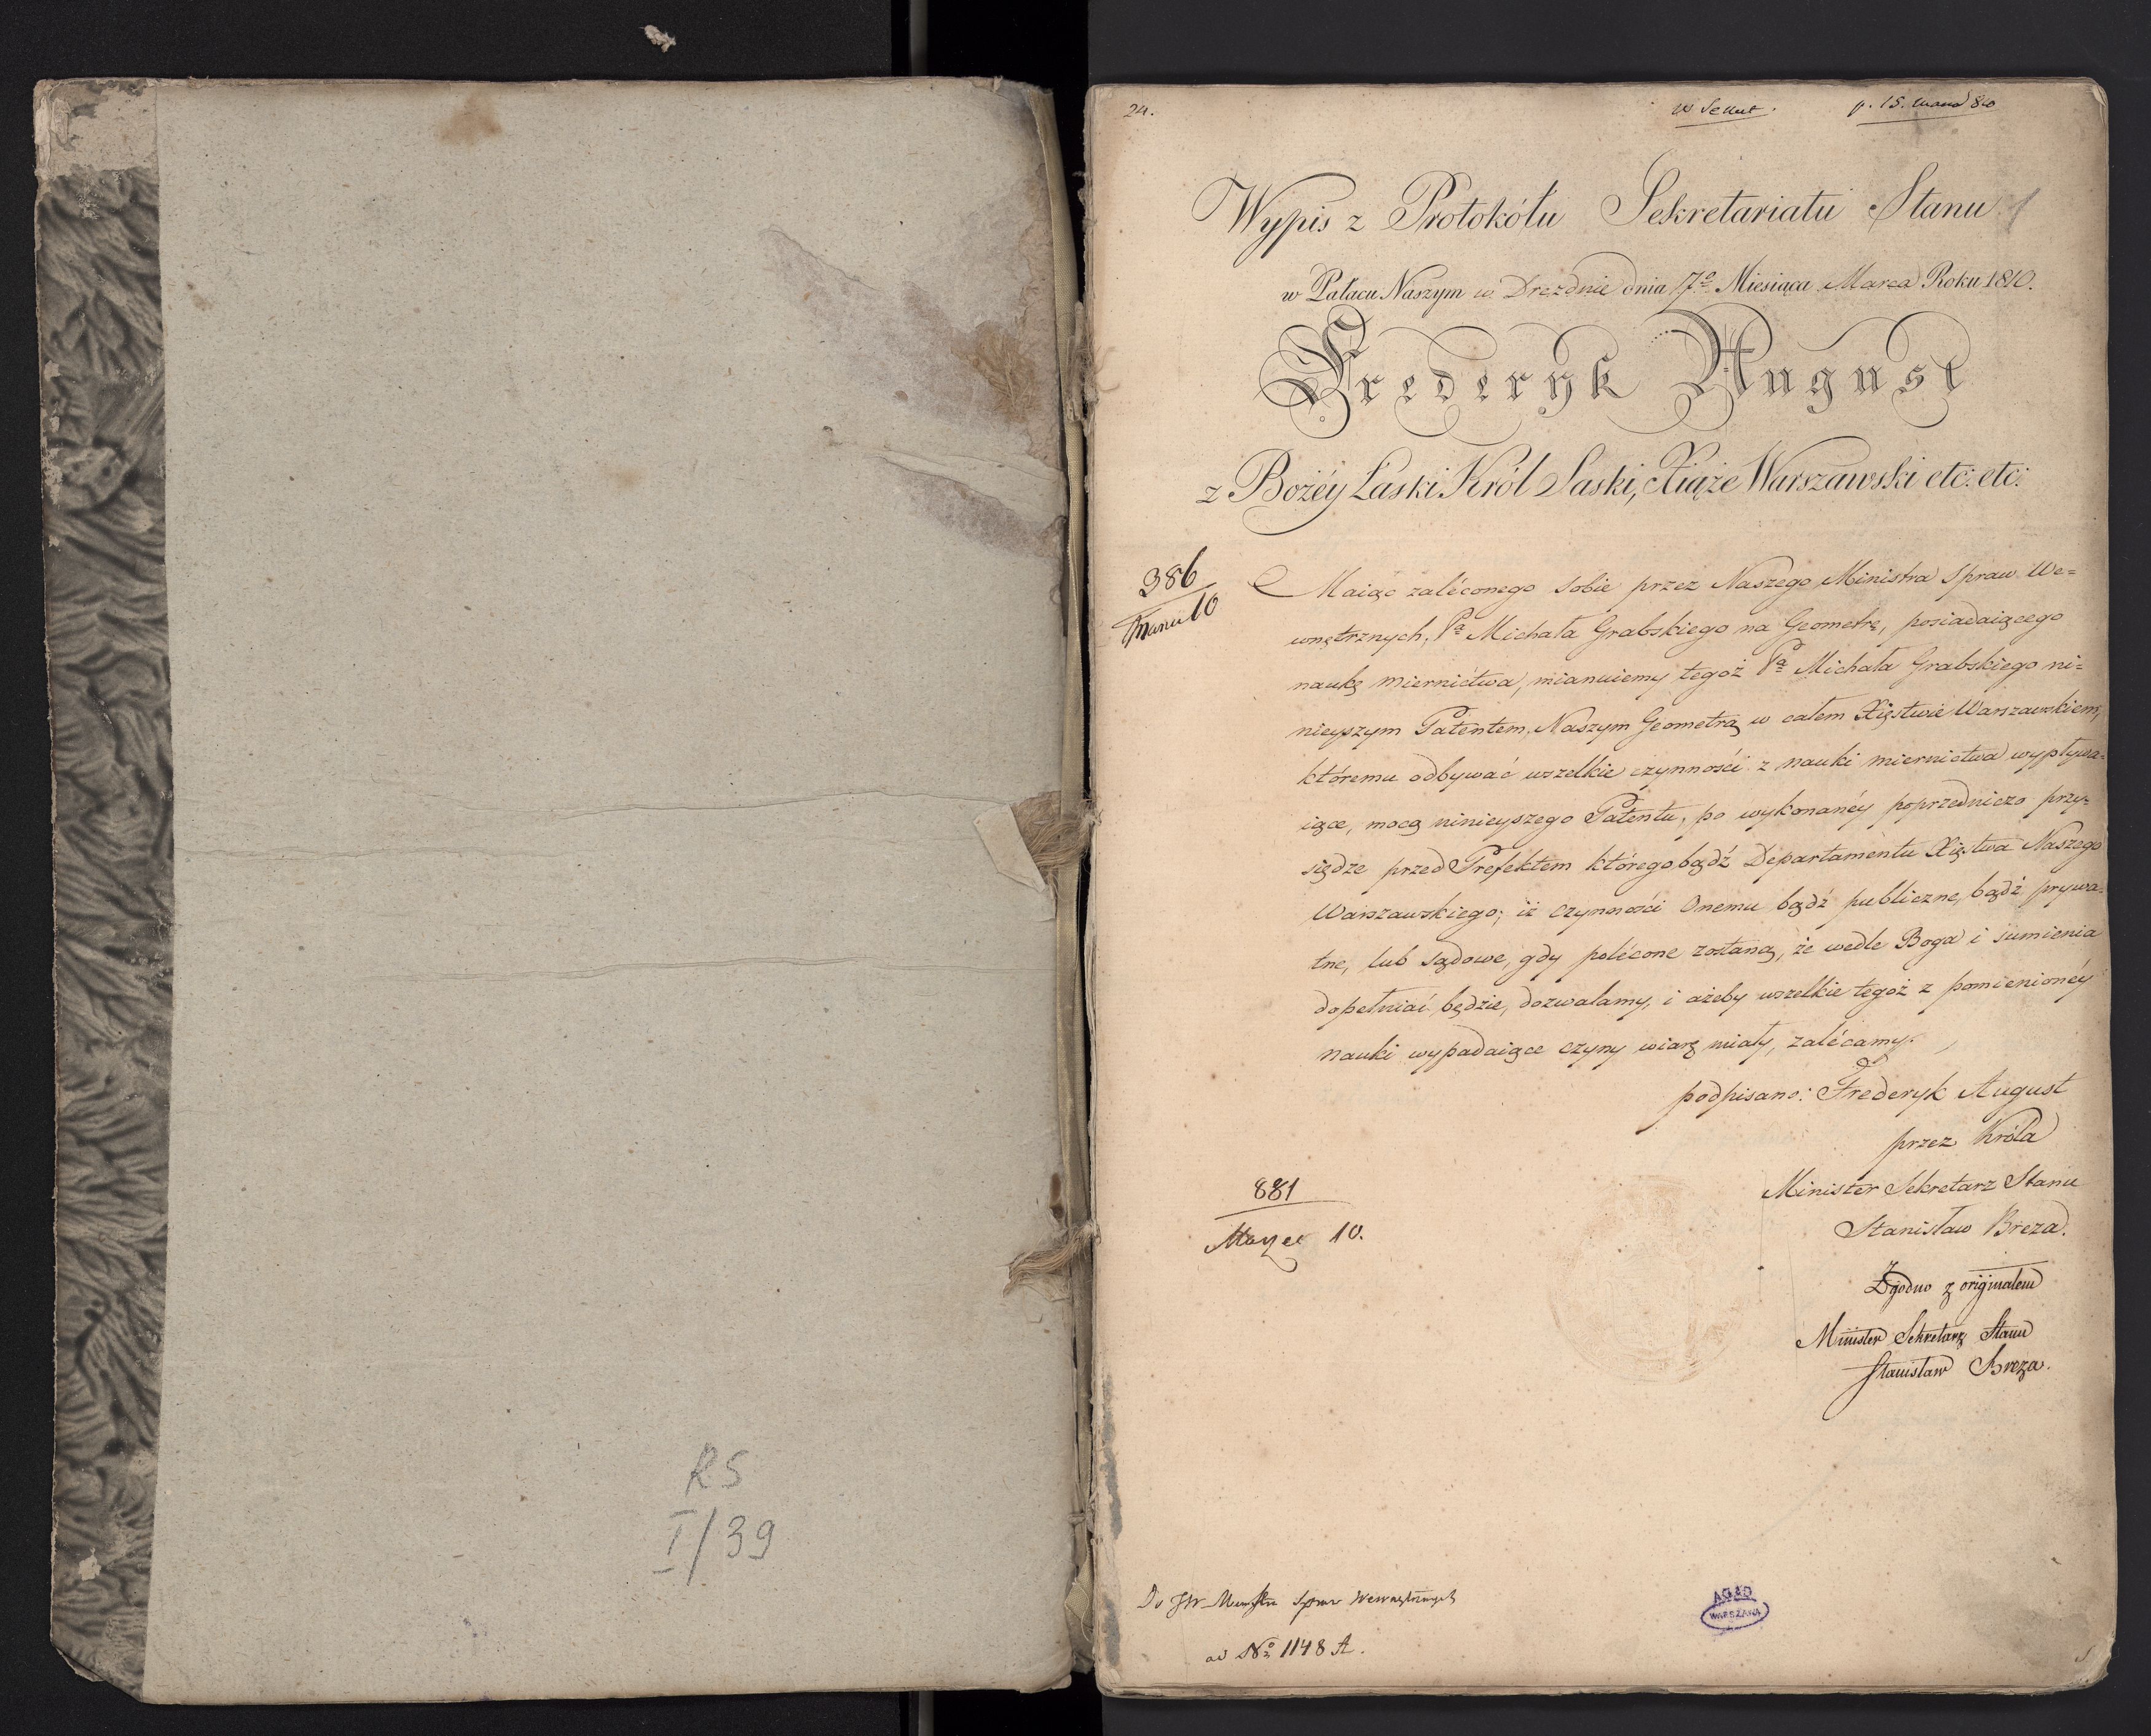 RS
I/39
24.
p. 15. 810
Wypis z Protokółu Sekretariatu Stanu
1
w Pałacu Naszym w Dreznie dnia 7º Miesiąca Marca Roku 1810.
Frederyk August
z Bożéy Łaski Król Saski, Xiąże Warszawski etc: etc:
386
10
Maiąc zaléconego sobie przez Naszego Ministra Spraw We=
wnętrznych, Pª Michała Grabskiego na Geometrę, posiadaiącego
naukę miernictwa, mianuiemy tegoż Pª Michała Grabskiego ni=
nieyszym Patentem, Naszym Geometrą w całem Xięstwie Warszawskiem,
któremu odbywać wszelkie czynności z nauki miernictwa wypływa=
iące, mocą ninieyszego Patentu, po wykonanéy poprzedniczo przy=
siędze przed Prefektem którego bądź Departamentu Xięstwa Naszego
Warszawskiego; iż czynności Onemu bądź publiczne, bądź prywa=
tne, lub sądowe, gdy polécone zostaną, że wedle Boga i sumienia
dopełniać będzie, dozwalamy, i ażeby wszelkie tegoż z pomienionéy
nauki wypadaiące czyny wiarę miały, zalécamy.
podpisano: Frederyk August
przez Króla
Minister Sekretarz Stanu
Stanisław Breza.
881
Marzec 10.
Zgodno z originalem
Minister Sekretarz Stanu
Stanisław Breza.
Do JW Ministra Spraw Wewnętrznych
ad Nº 1148 A.
AGAD
WARSZAWA